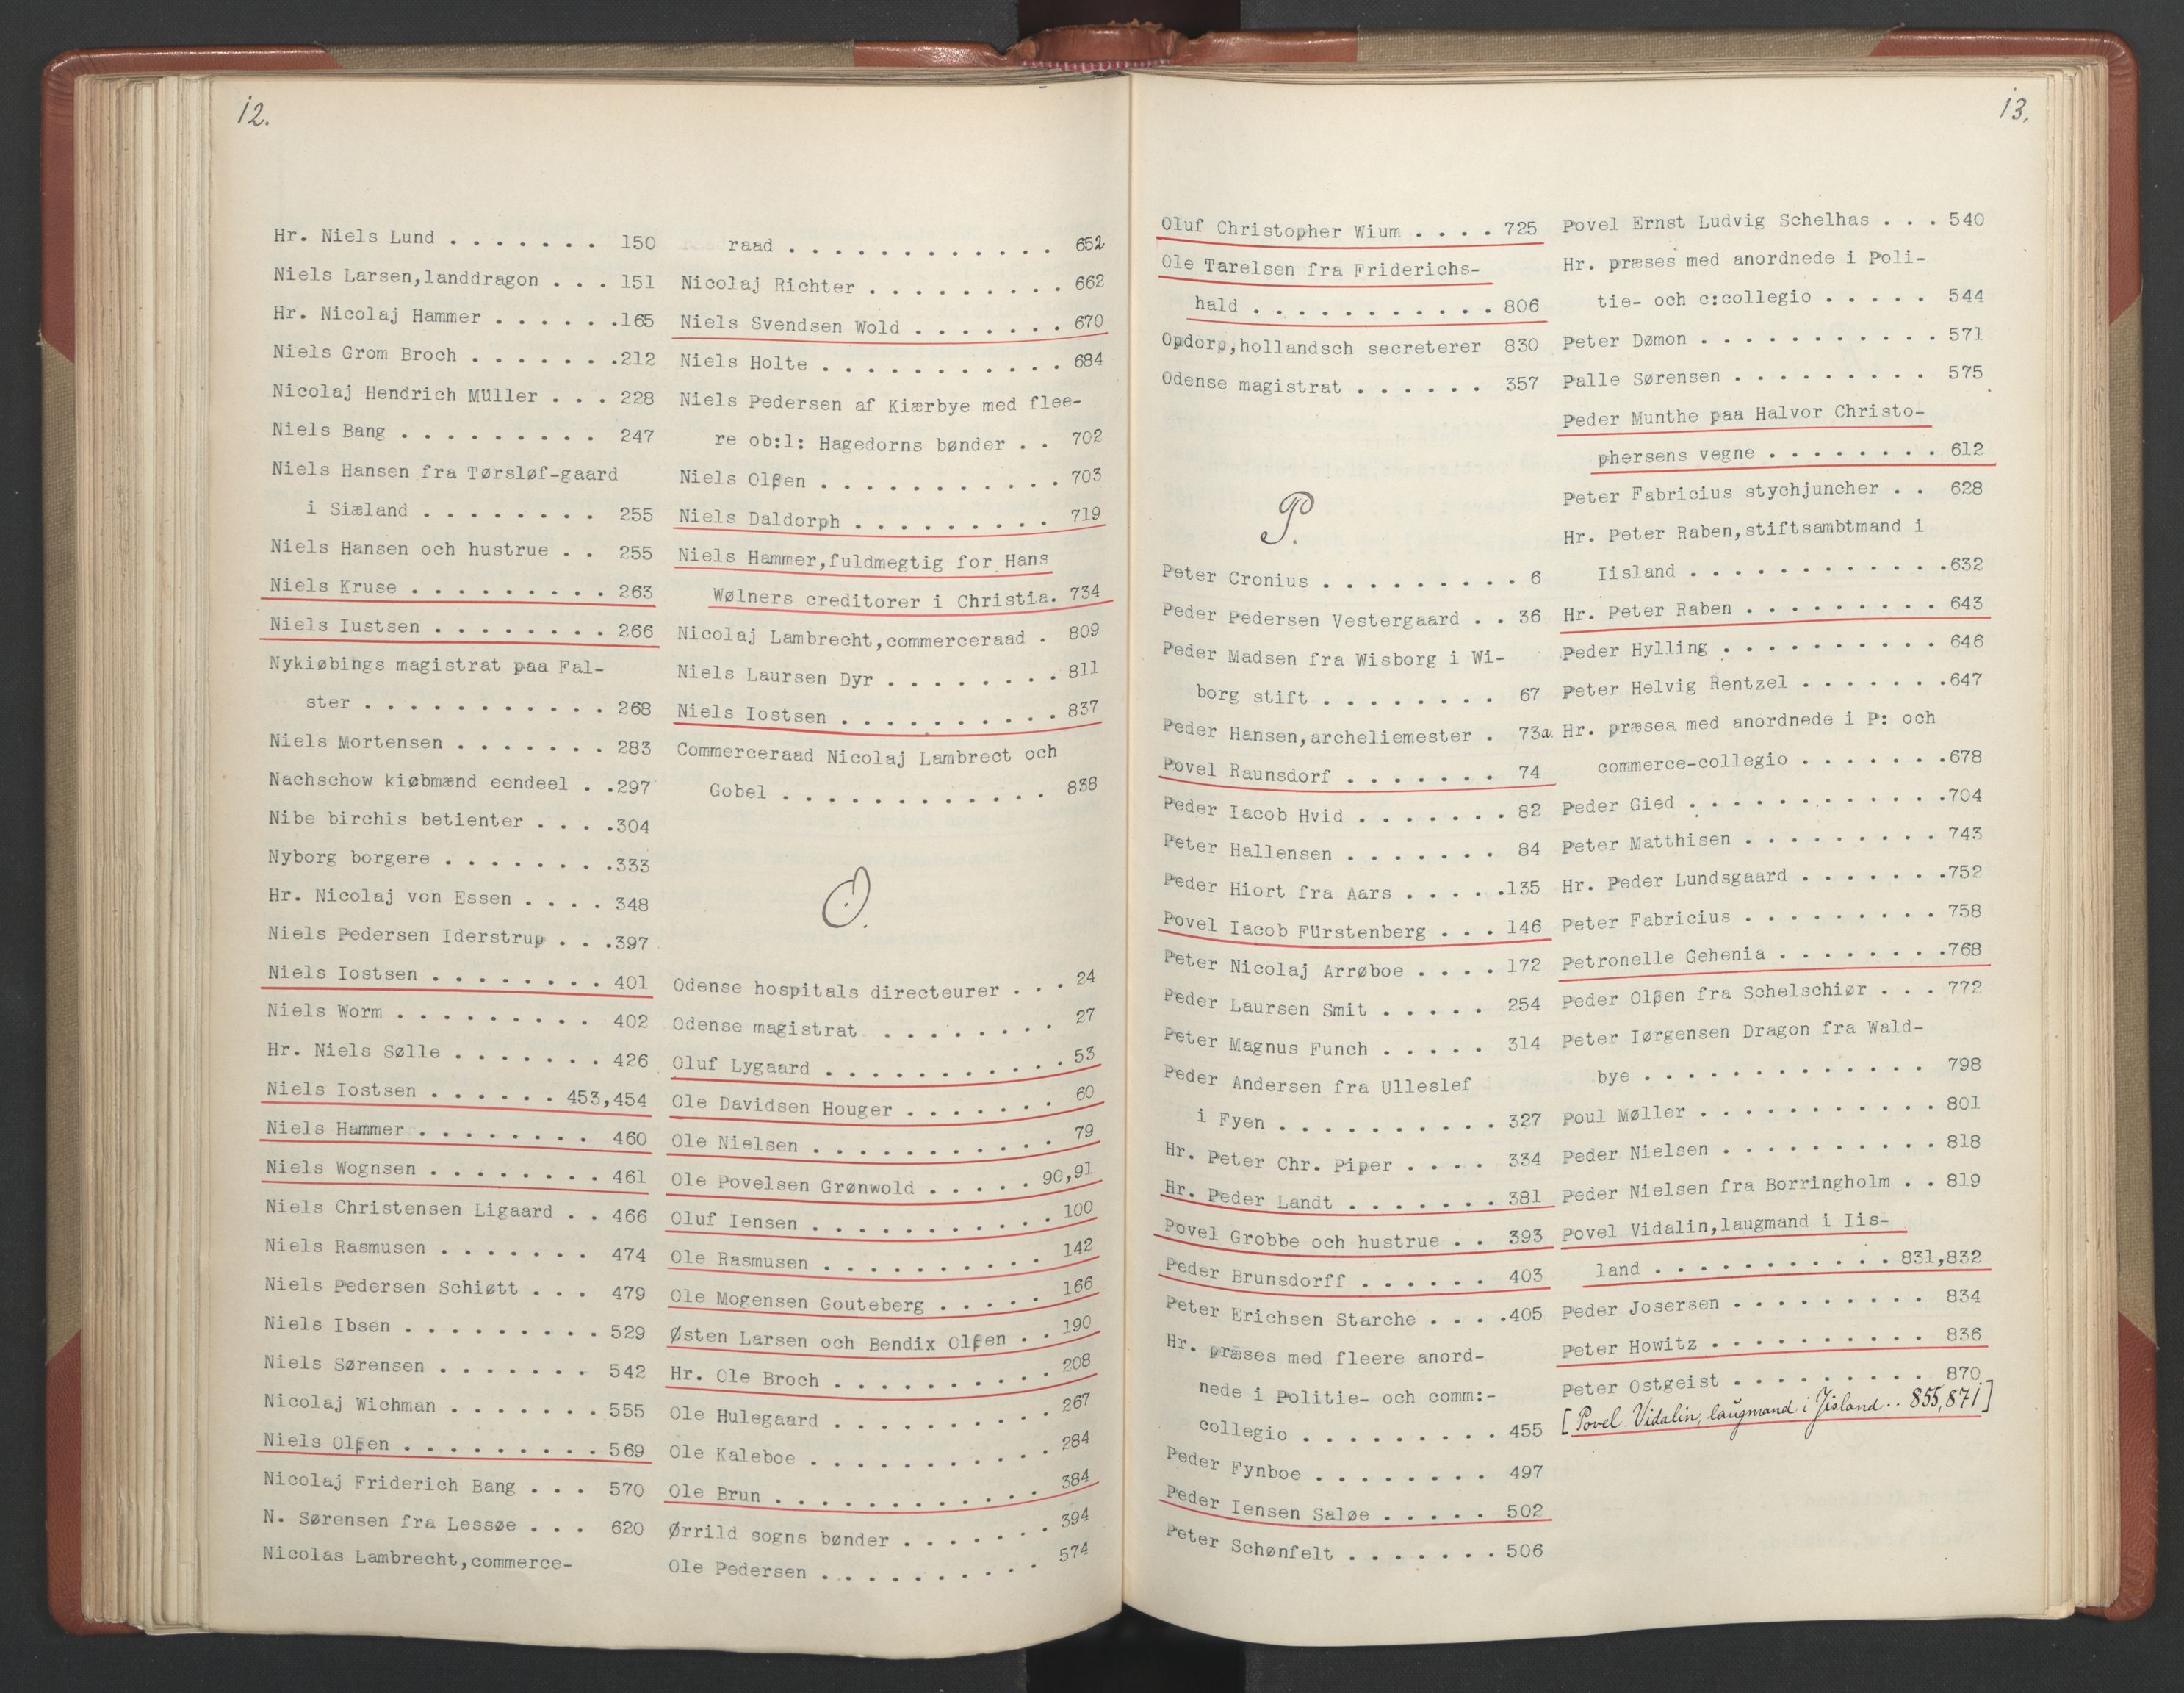 12.
Hr. Niels Lund . . . . . . . 150
Niels Larsen,landdragon . . . 151
Hr. Nicolaj Hammer . . . . . .165
Niels Grom Broch . . . . . . .212
Nicolaj Hendrich Müller . . . 228
Niels Bang . . . . . . . . . 247
Niels Hansen fra Tørsløf-gaard
i Siæland . . . . . . . . 255
Niels Hansen och hustrue . . 255
Niels Kruse . . . . . . . . . 263
Niels Iustsen . . . . . . . . 266
Nykiøbings magistrat paa Fal-
ster . . . . . . . . . . . 268
Niels Mortensen . . . . . . . 283
Nachschow kiøbmænd eendeel . .297
Nibe birchis betienter . . . .304
Nyborg borgere . . . . . . . .333
Hr. Nicolaj von Essen . . . . 348
Niels Pedersen Iderstrup . . .397
Niels Iostsen . . . . . . . . 401
Niels Worm . . . . . . . . . 402
Hr. Niels Sølle . . . . . . . 426
Niels Iostsen . . . . . . 453,454
Niels Hammer . . . . . . . . 460
Niels Wognsen . . . . . . . . 461
Niels Christensen Ligaard . . 466
Niels Rasmusen . . . . . . . 474
Niels Pedersen Schiøtt . . . 479
Niels Ibsen . . . . . . . . . 529
Niels Sørensen . . . . . . . 542
Nicolaj Wichman . . . . . . . 555
Niels Olßen . . . . . . . . . 569
Nicolaj Friderich Bang . . . 570
N. Sørensen fra Lessøe . . . 620
Nicolas Lambrecht,commerce-
raad . . . . . . . . . . . . 652
Nicolaj Richter . . . . . . . . . 662
Niels Svendsen Wold . . . . . . . 670
Niels Holte . . . . . . . . . . . 684
Niels Pedersen af Kiærbye med flee-
re ob:l: Hagedorns bønder . . 702
Niels Olßen . . . . . . . . . . . 703
Niels Daldorph . . . . . . . . . 719
Niels Hammer,fuldmegtig for Hans
Wølners creditorer i Christia. 734
Nicolaj Lambrecht,commerceraad . 809
Niels Laursen Dyr . . . . . . . . 811
Niels Iostsen . . . . . . . . . . 837
Commerceraad Nicolaj Lambrect och
Gobel . . . . . . . . . . . . 838
O.
Odense hospitals directeurer . . . 24
Odense magistrat . . . . . . . . 27
Oluf Lygaard . . . . . . . . . . . 53
Ole Davidsen Houger . . . . . . . 60
Ole Nielsen . . . . . . . . . . . 79
Ole Povelsen Grønwold . . . . . 90,91
Oluf Iensen . . . . . . . . . . . 100
Ole Rasmusen . . . . . . . . . . 142
Ole Mogensen Gouteberg . . . . . 166
Østen Larsen och Bendix Olßen . . 190
Hr. Ole Broch . . . . . . . . . . 208
Ole Hulegaard . . . . . . . . . . 267
Ole Kaleboe . . . . . . . . . . . 284
Ole Brun . . . . . . . . . . . . 384
Ørrild sogns bønder . . . . . . . 394
Ole Pedersen . . . . . . . . . . 574
13.
Oluf Christopher Wium . . . . 725
Ole Tarelsen fra Friderichs-
hald . . . . . . . . . . . 806
Opdorp,hollandsch secreterer 830
Odense magistrat . . . . . . 357
P.
Peter Cronius . . . . . . . . . 6
Peder Pedersen Vestergaard . . 36
Peder Madsen fra Wisborg i Wi-
borg stift . . . . . . . . 67
Peder Hansen,archeliemester . 73a
Povel Raunsdorf . . . . . . . 74
Peder Iacob Hvid . . . . . . . 82
Peter Hallensen . . . . . . . 84
Peder Hiort fra Aars . . . . .135
Povel Iacob Fürstenberg . . . 146
Peter Nicolaj Arrøboe . . . . 172
Peder Laursen Smit . . . . . 254
Peter Magnus Funch . . . . . 314
Peder Andersen fra Ulleslef
i Fyen . . . . . . . . . . 327
Hr. Peter Chr. Piper . . . . 334
Hr. Peder Landt . . . . . . . 381
Povel Grobbe och hustrue . . 393
Peder Brunsdorff . . . . . . 403
Peter Erichsen Starche . . . .405
Hr. præses med fleere anord-
nede i Politie- och comm:-
collegio . . . . . . . . . 455
Peder Fynboe . . . . . . . . 497
Peder Iensen Saløe . . . . . 502
Peter Schønfelt . . . . . . . 506
Povel Ernst Ludvig Schelhas . . . 540
Hr. præses med anordnede i Poli-
tie- och c:collegio . . . . . 544
Peter Dømon . . . . . . . . . . . 571
Palle Sørensen . . . . . . . . . 575
Peder Munthe paa Halvor Christo-
phersens vegne . . . . . . . . 612
Peter Fabricius stychjuncher . . 628
Hr. Peter Raben,stiftsambtmand i
Iisland . . . . . . . . . . . .632
Hr. Peter Raben . . . . . . . . . 643
Peder Hylling . . . . . . . . . . 646
Peter Helvig Rentzel . . . . . . .647
Hr. præses med anordnede i P: och
commerce-collegio . . . . . . .678
Peder Gied . . . . . . . . . . . .704
Peter Matthisen . . . . . . . . . 743
Hr. Peder Lundsgaard . . . . . . .752
Peter Fabricius . . . . . . . . . 758
Petronelle Gehenia . . . . . . . .768
Peder Olßen fra Schelschiør . . . 772
Peter Iørgensen Dragon fra Wald-
bye . . . . . . . . . . . . . 798
Poul Møller . . . . . . . . . . . 801
Peder Nielsen . . . . . . . . . . 818
Peder Nielsen fra Borringholm . . 819
Povel Vidalin,laugmand i Iis-
land . . . . . . . . . . . 831,832
Peder Josersen . . . . . . . . . 834
Peter Howitz . . . . . . . . . . 836
Peter Ostgeist . . . . . . . . . 870
[Povel Vidalin, laugmand i Iisland . . 855,871]